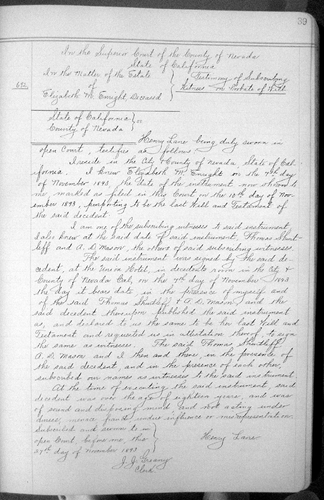 39
In the Superior Court of the County of Nevada
State of California
In the Matter of the Estate
of
Elizabeth M. Enright, Deceased
Testimony of Subscribing
Witness on Probate of Will
State of California
County of Nevada
ss
Henry Lane being duly sworn in
open Court, testifies as follows
I reside in the City & County of Nevada, State of Cal-
ifornia. I knew Elizabeth M. Enright on the 7th day
of November 1893, the date of the instrument now shown to
me, marked as filed in this Court on the 13th day of Nov-
ember 1893, purporting to be the last Will and Testament of
the said decedent
I am one of the subscribing witnesses to said instrument,
I also knew at the said date of said instrument, Thomas Shurt-
leff and A. D. Mason, the others of said subscribing witnesses
The said instrument was signed by the said de-
cedent, at the Union Hotel, in the City &
County of Nevada Cal, on the 7th day of November 1893
the day it bears date in the presence of myself and
of the said Thomas Shurtleff & A. D. Mason, and the
said decedent thereupon published the said instrument
as, and declared to us the same to be her last Will and
Testament and requested us in attestation thereof to sign
the same as witnesses. The said Thomas Shurtleff
A. D. Mason and I then and there in the presence of
the said decedent, and in the presence of each other,
subscribed our names as witnesses to the said instrument
At the time of executing the said instrument, said
decedent was over the age of eighteen years, and was
of sound and disposing mind and not acting under
duress, menace, fraud, undue influence or misrepresentation.
Subscribed and sworn to in
open Court, before me, this
27th day of November 1893
Henry Lane
Clerk